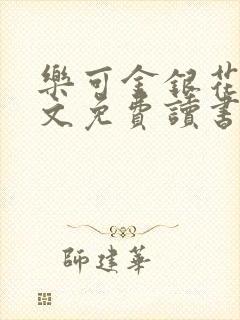 樂可金銀花
文免費讀書
師建華